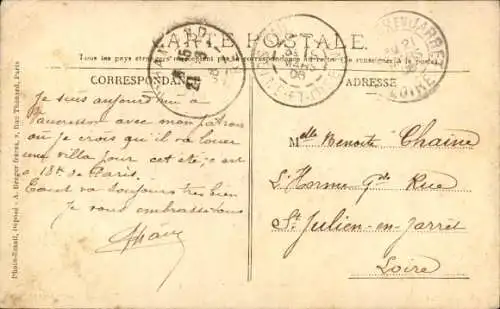 CARTE POSTALE
Tous les pays étrangers n'acceptent pas la correspondance au recto (Se renseigner à la poste)
CORRESPONDANCE
ADRESSE
Je suis aujourd'hui à
Vaucresson avec mon patron
où je crois qu'il va louer
une villa pour cet été, c'est
à 18k de Paris.
Tout va toujours très bien
Je vous embrasse tous
Melle Benoite Chaine
L'Horme Gde Rue
St Julien-en-Jarret
Loire
Photo-Email, Déposé - A. Breger frères, 9, Rue Thénard, Paris